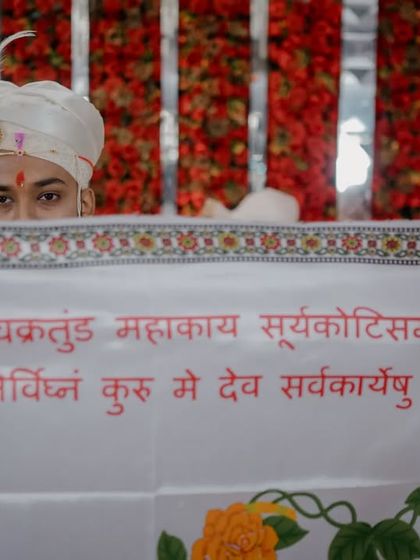 वक्रतुंड महाकाय सूर्यकोटिस
निर्विघ्नं कुरु मे देव सर्वकार्येषु